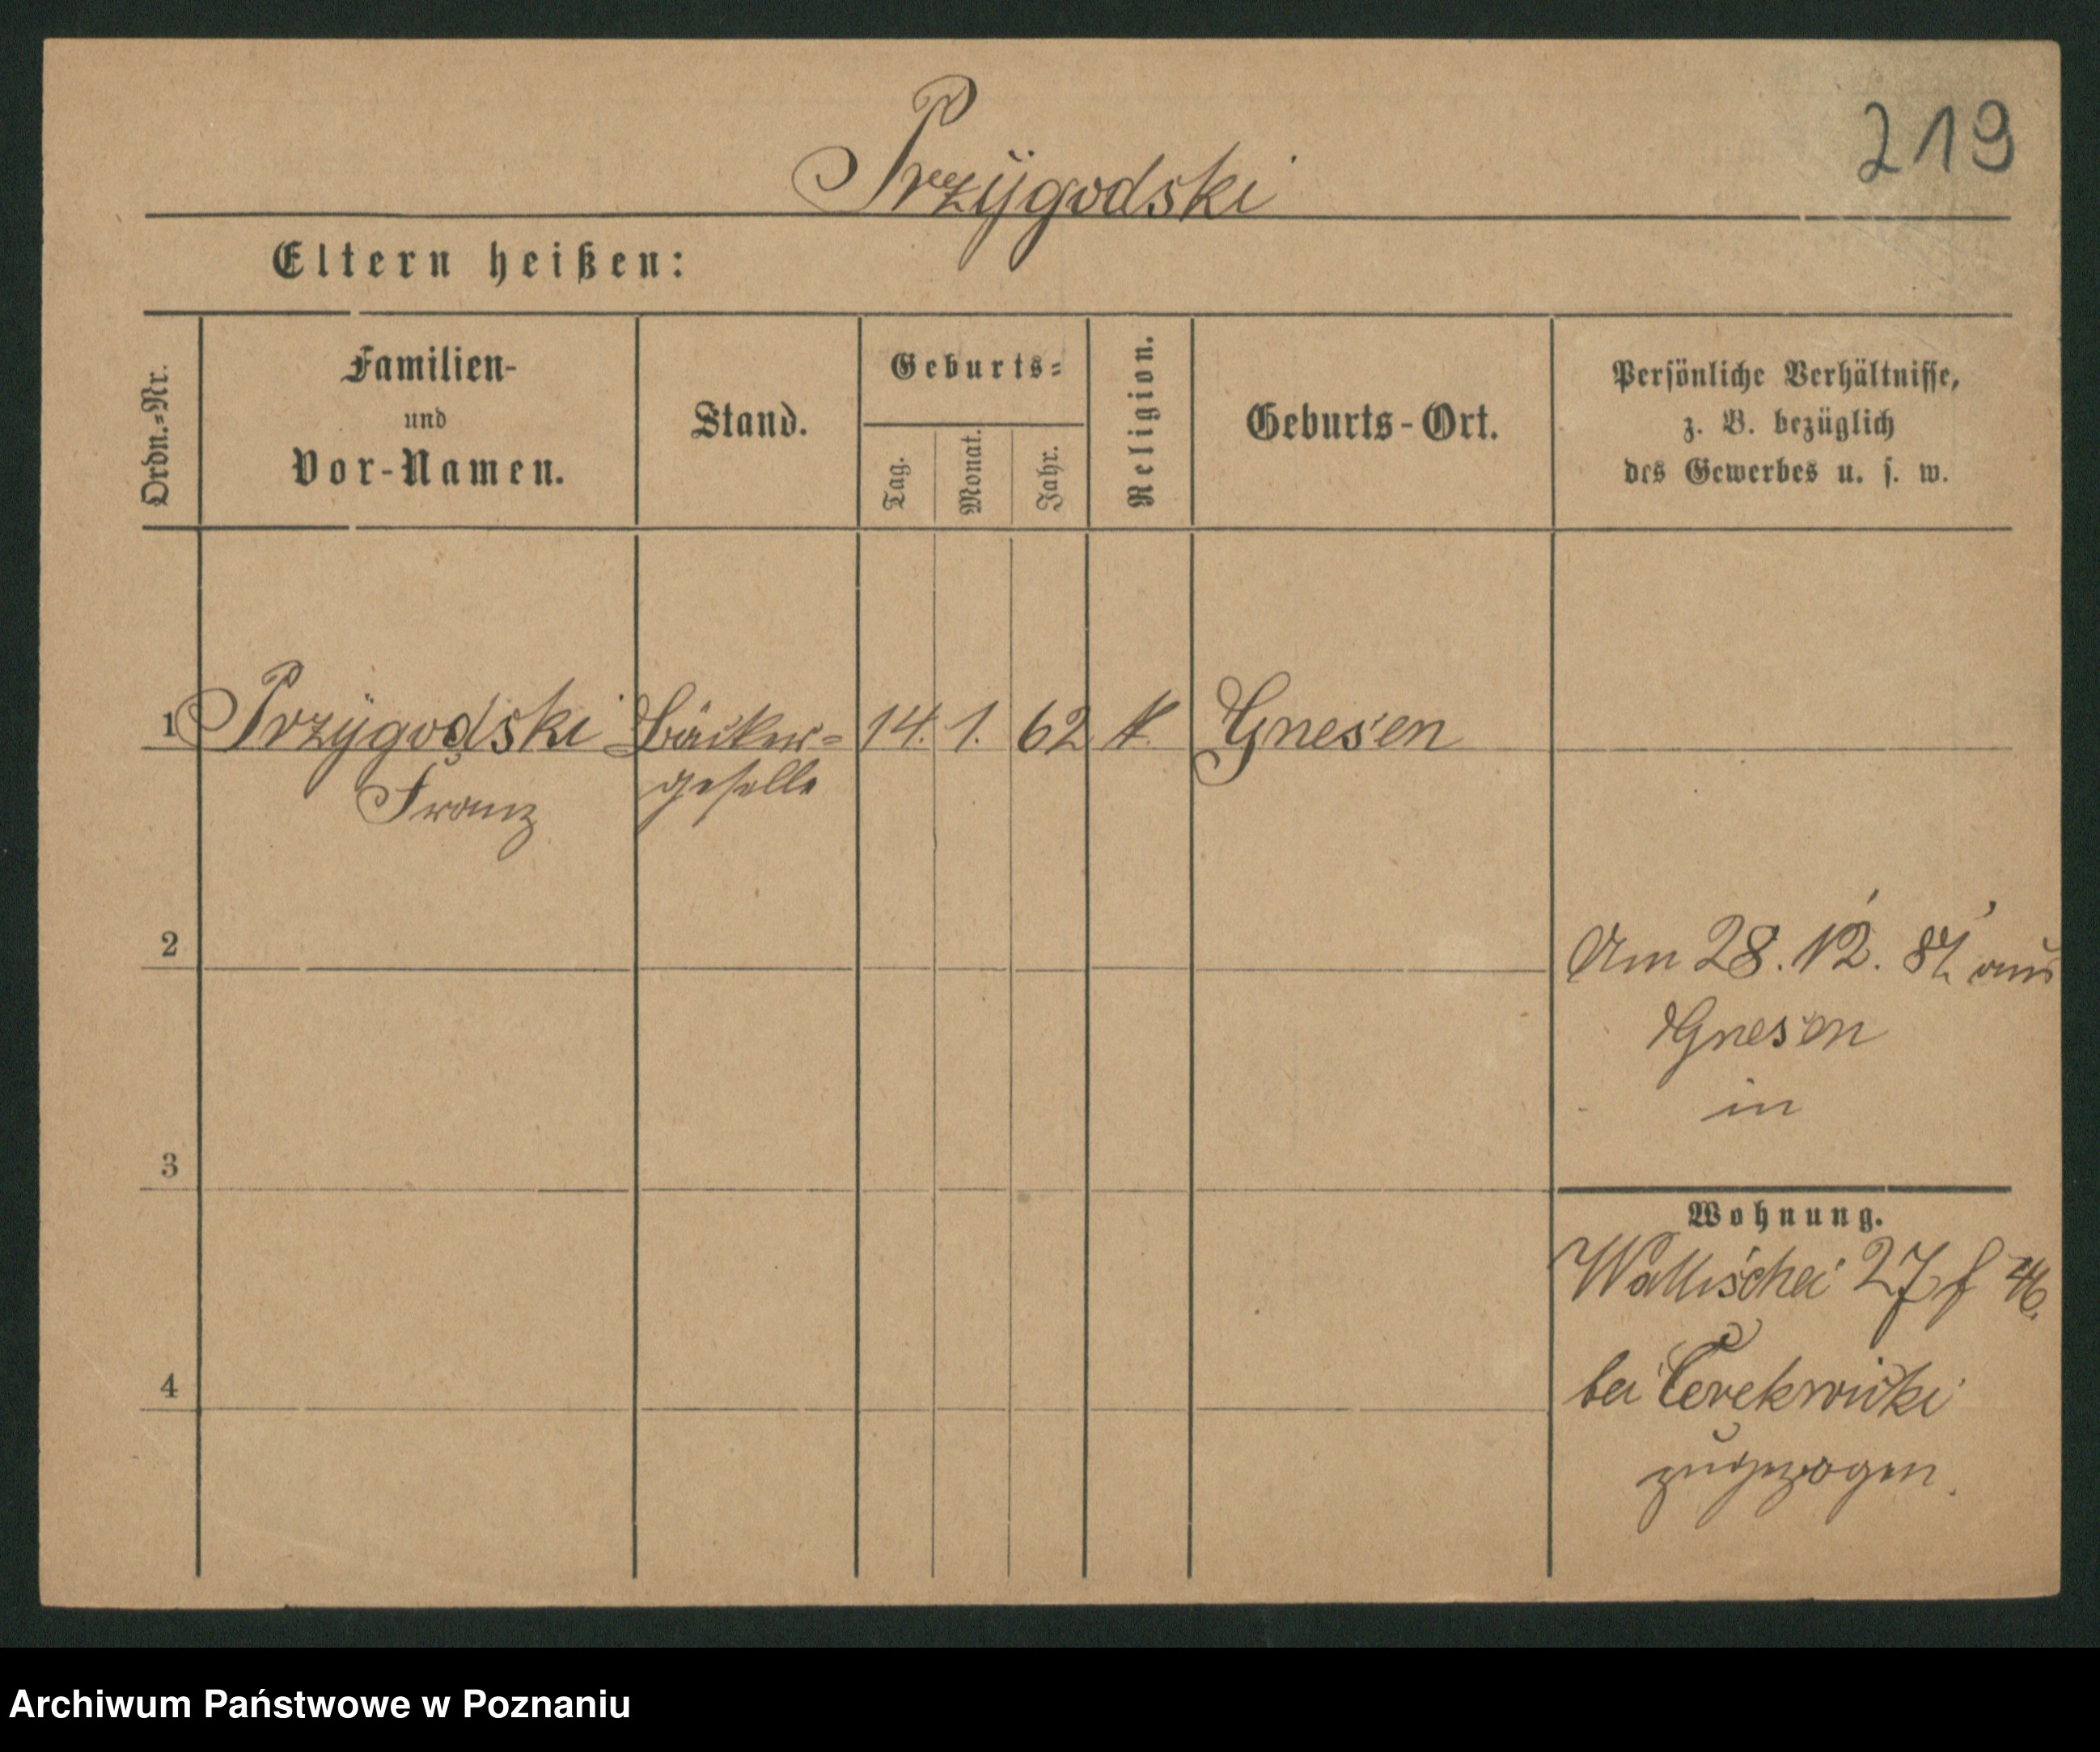 219
Przÿgodski
Eltern heißen:
Ordn.=Nr.
Familien-
und
Vor-Namen.
Stand.
Geburts=
Tag.
Monat.
Jahr.
Religion.
Geburts-Ort.
Persönliche Verhältnisse,
z. B. bezüglich
des Gewerbes u. s. w.
1 Przÿgodski Bäcker= 14. 1. 62 k. Gnesen
Franz geselle
2
Am 28. 12. 87 aus
Gnesen
in
3
Wohnung.
Wallischei 27
4
bei Cerekwicki
zugezogen.
Archiwum Państwowe w Poznaniu